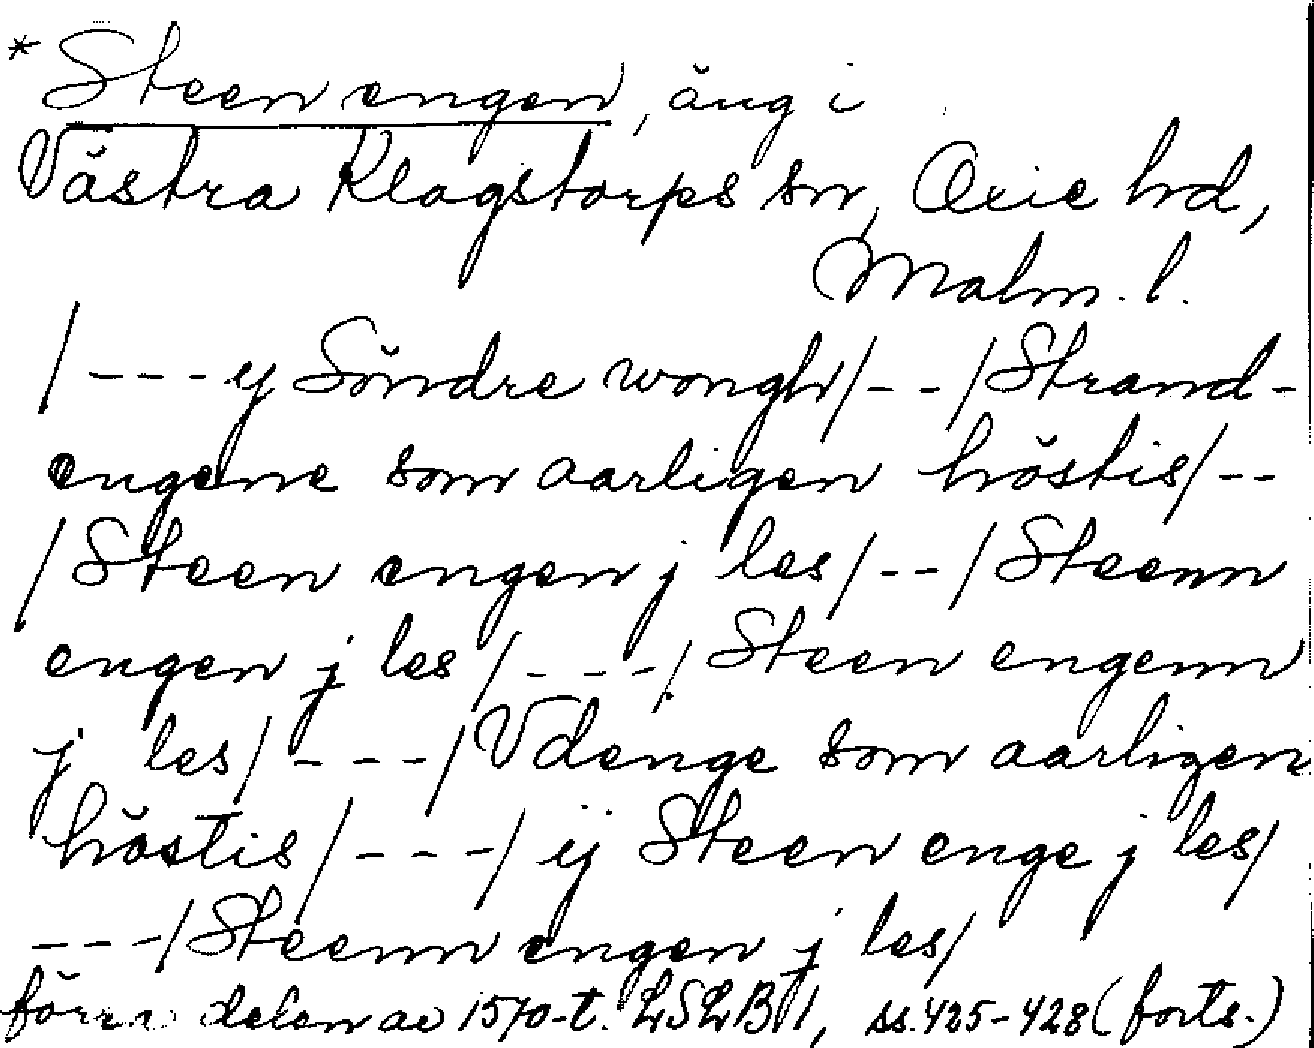 * Steen engen, äng i
Västra Klagstorps sn, Oxie hd,
Malm. l.
/---y Söndre wongh/--/Strand-
engene som aarligen höstis/--
/Steen engen j les/--/Steenn
engen j les/---/Steen engenn
j les/---/Vdenge som aarligen
höstis/---/ ij Steen enge j les/
---/Steenn engen j les/
förra delen av 1570-t. LSLB 1, ss. 425-428 (forts.)